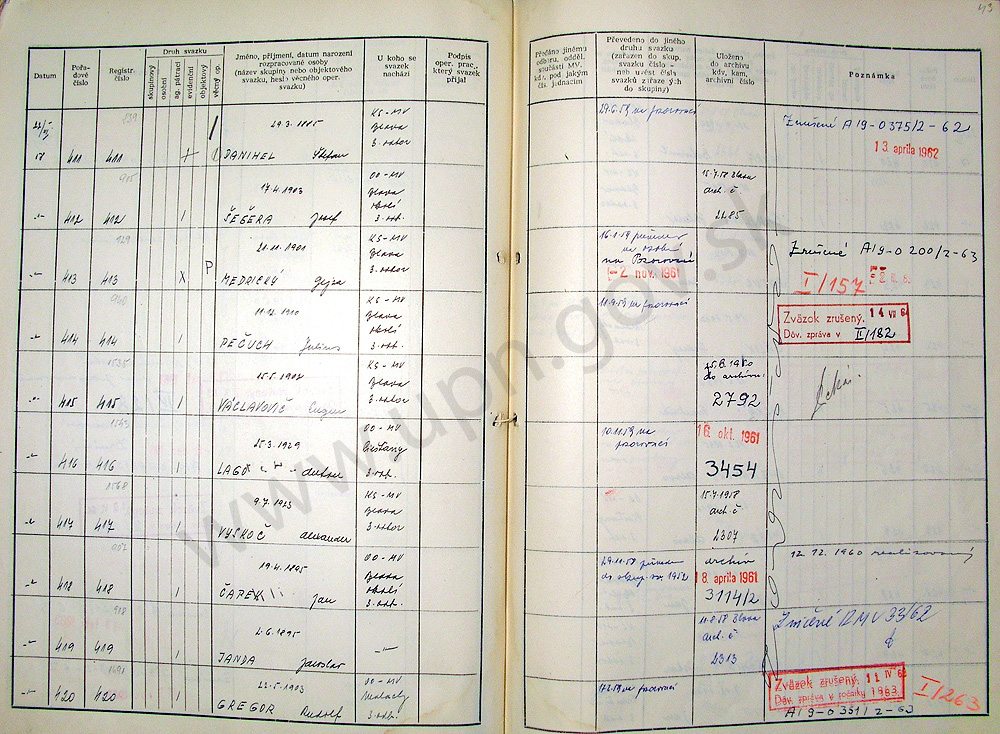 43
Datum
Pořa-
dové
číslo
Registr.
číslo
Druh svazku
skupinový
osobní
ag. pátrací
evidenční
objektový
věcný op.
Jméno, příjmení, datum narození
rozpracované osoby
(název skupiny nebo objektového
svazku, heslo věcného oper.
svazku)
U koho se
svazek
nachází
Podpis
oper. prac.,
který svazek
přijal
Předáno jinému
odboru, odděl.
součásti MV,
kdy, pod jakým
čís. jednacím
Převedeno do jiného
druhu svazku
(zařazen do skup.
svazku číslo -
neb uvést čísla
svazků zařaze ých
do skupiny)
Uloženo
do archivu
kdy, kam,
archivní číslo
Poznámka
839
411 411
29.3.1885
DANIHEL Štefan
KS-MV
Blava
3. odbor
29.6.59 na pozorovací
Zrušené A19-0375/2-62
13. apríla 1962
905
412 412
17.4.1903
ŠEGĚRA Josef
OO-MV
Blava
3. odd.
15.7.58 Blava
arch. č
2285
929
413 413
X
P
21.11.1901
MEDRICKÝ Gejza
KS-MV
Blava
3. odbor
na Pozorovací
-2. nov. 1961
Zrušené A19-0200/2-63
I/157
960
414 414
11.12.1910
PEČUCH Julius
KS-MV
Blava
3. odd.
11.9.59 na pozorovací
Zväzok zrušený. 14 VII 64
Dôv. zpráva v II/182
1535
415 415
15.5.1902
VÁCLAVOVIČ Eugen
KS-MV
Blava
3. odbor
do archívu
2792
1543
416 416
25.3.1929
LAGO
OO-MV
Piešťany
3. odd.
10.11.59 na
pozorovací
16. okt. 1961
3454
1568
417 417
9.7.1923
VYSKOČ Alexander
KS-MV
Blava
3. odbor
15.7.1958
arch. č
2307
907
418 418
19.4.1895
ČAPEK Jan
OO-MV
Blava
3. odd.
archiv
18. apríla 1961
3114/2
12.12.1960 realizovaný
918
419 419
2.6.1895
JANDA Jaroslav
11.8.58 Blava
arch. č
2313
Zničené RMV 33/62
1491
420 420
22.5.1903
GREGOR Rudolf
OO-MV
Malacky
3. odd.
Zväzok zrušený. 11 IV 64
Dôv. zpráva v ročníky 1963.
I/263
A19-0351/2-63
www.upn.gov.sk